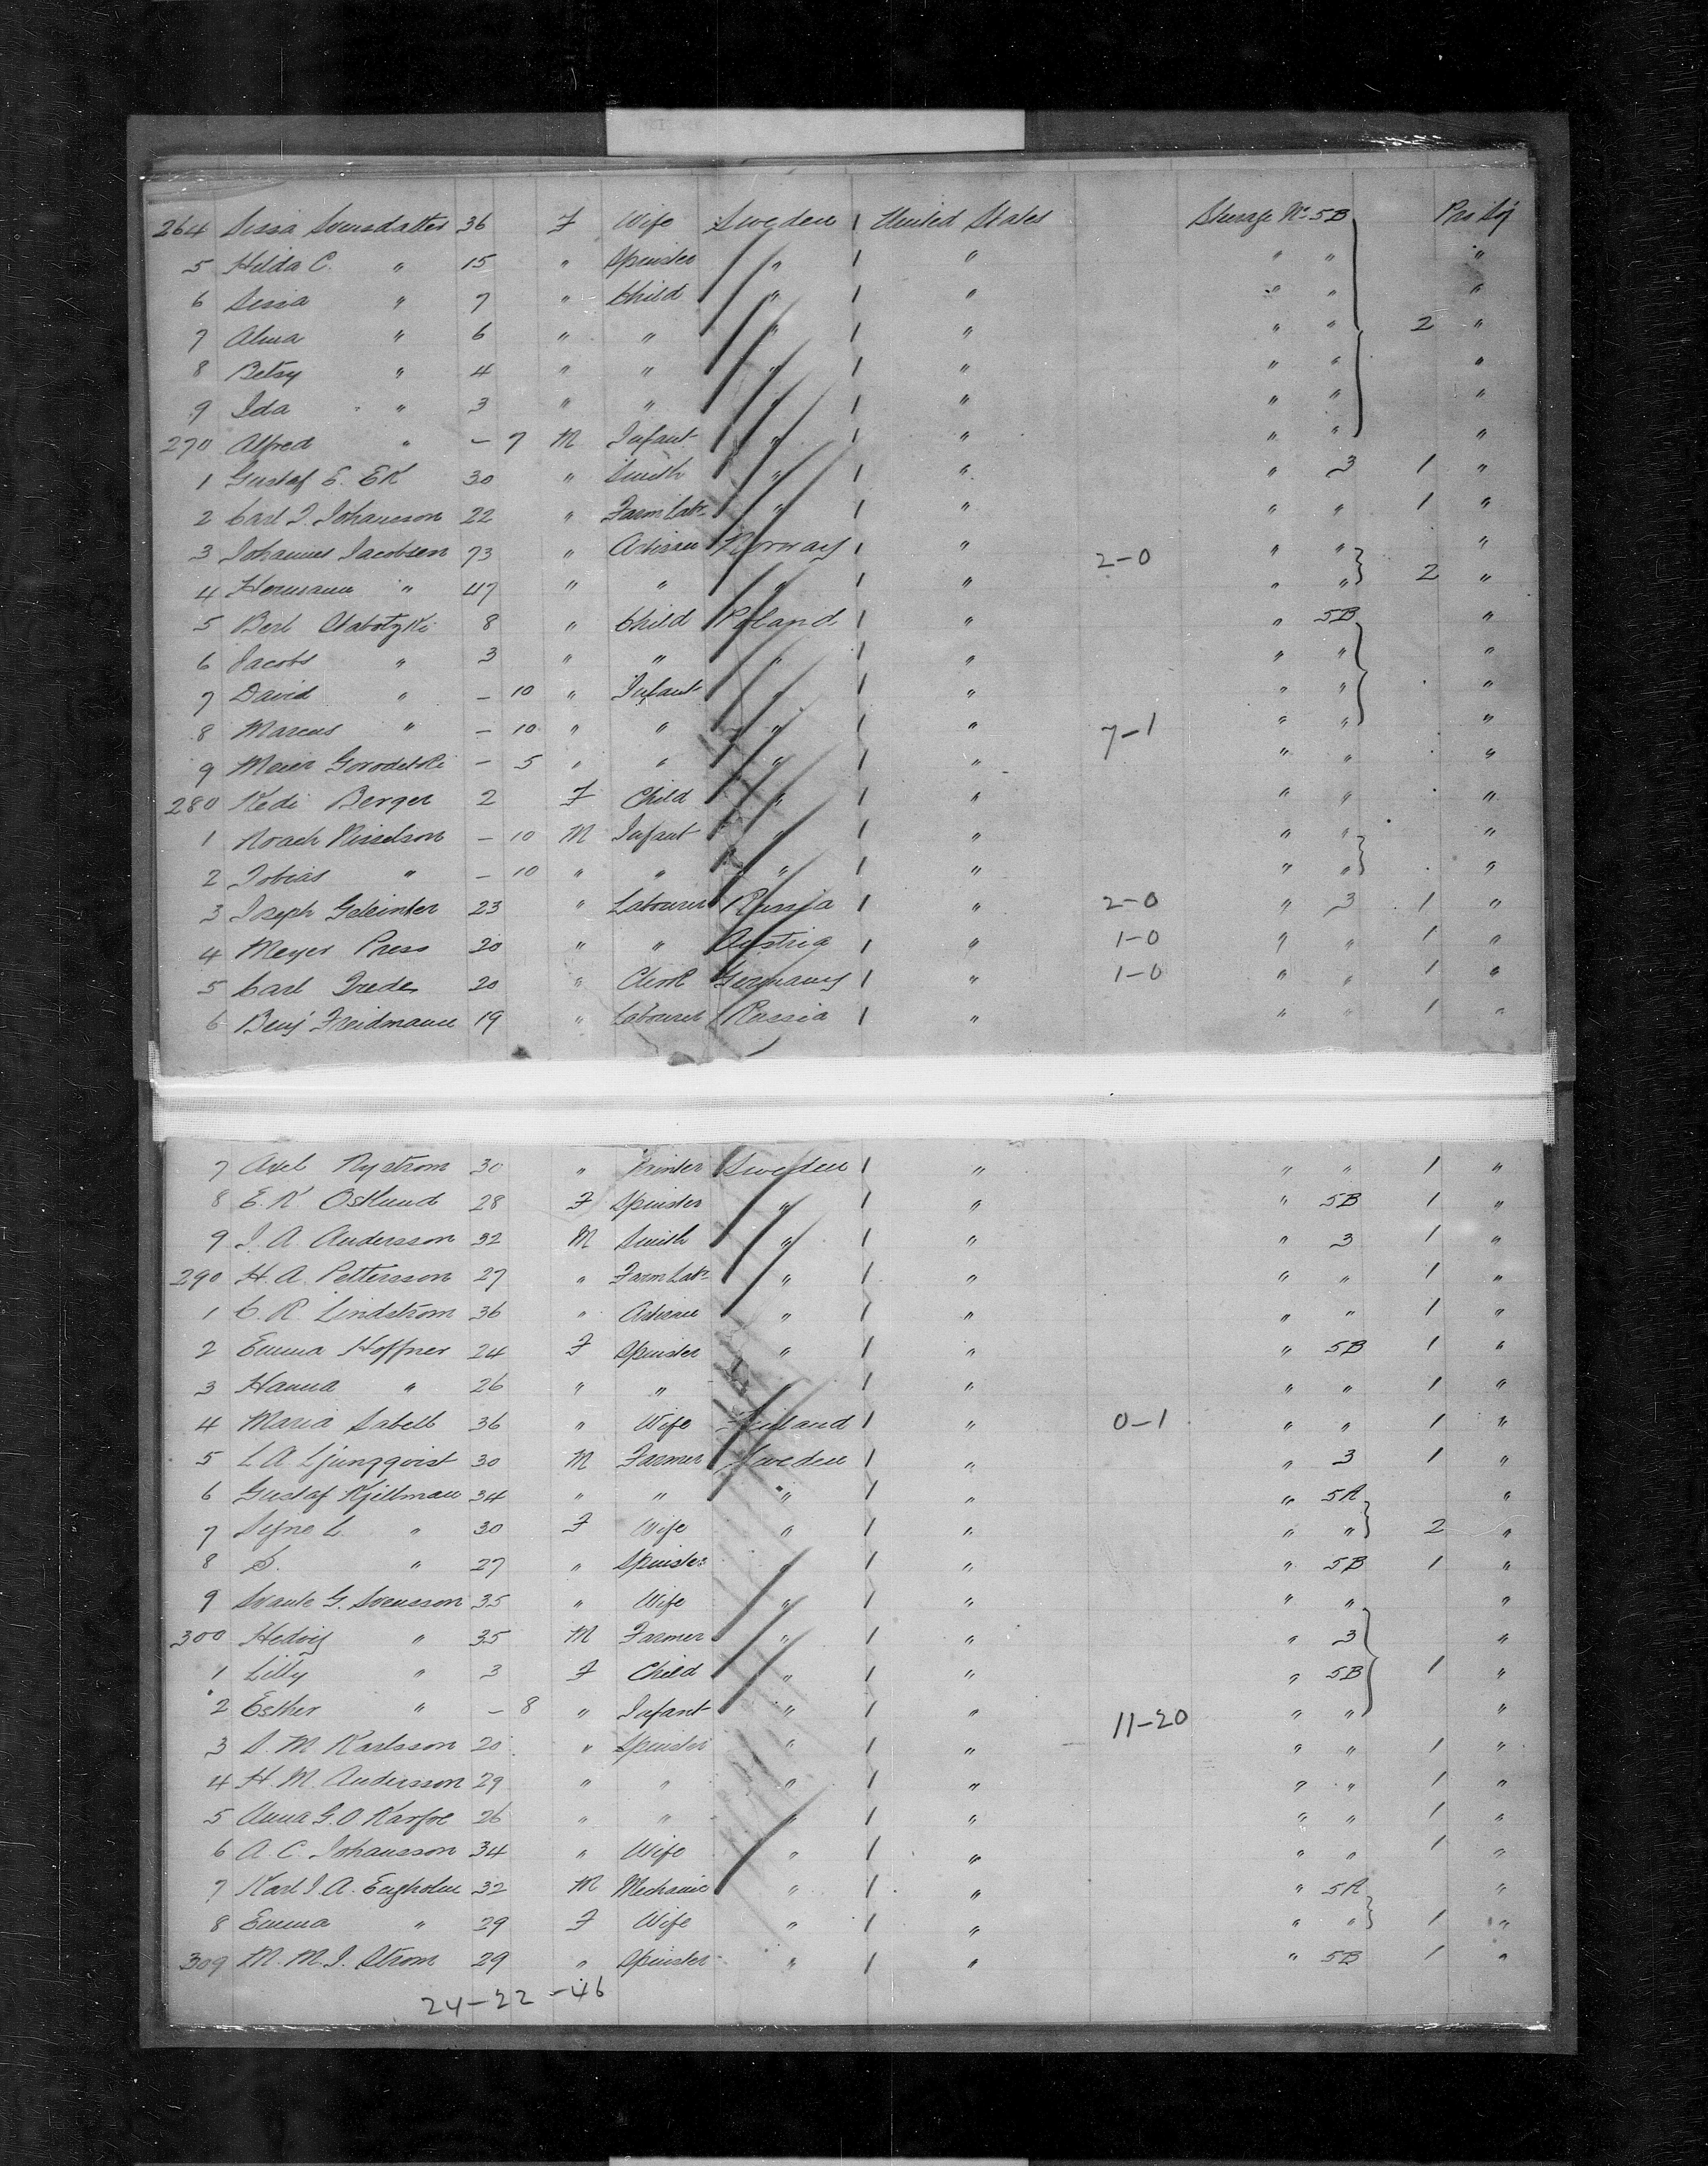 264 Sissa Svensdatter 36 F Wife Sweden 1 United States Steerage No 5B Pro Sej
5 Hilda C. " 15 " Spinster " 1 " " " "
6 Sissa " 7 " Child " 1 " " " "
7 Alma " 6 " " " 1 " " " 2 "
8 Betsy " 4 " " " 1 " " " "
9 Ida " 3 " " " 1 " " " "
270 Alfred " – 7 M Infant " 1 " " " "
1 Gustaf E. Ek 30 " Smith " 1 " " 3 1 "
2 Carl J. Johansson 22 " Farm Labr " 1 " " " 1 "
3 Johannes Jacobsen 73 " Artisan Norway 1 " 2-0 " " "
4 Hermann " 47 " " " 1 " " " 2 "
5 Berl Chabotzki 8 " Child Poland 1 " " 5B "
6 Jacobs " 3 " " " 1 " " " "
7 David " – 10 " Infant " 1 " " " "
8 Marcus " – 10 " " " 1 " 7-1 " " "
9 Meier Gorodetski – 5 " " " 1 " " " "
280 Kedi Berger 2 F Child " 1 " " " "
1 Noach Nisselson – 10 M Infant " 1 " " " "
2 Tobias " – 10 " " " 1 " " " "
3 Joseph Geleinter 23 " Labourer Russia 1 " 2-0 " 3 1 "
4 Meyer Press 20 " " Austria 1 " 1-0 " " 1 "
5 Carl Trede 20 " Clerk Germany 1 " 1-0 " " 1 "
6 Benj Freidmann 19 " Labourer Russia 1 " " " 1 "
7 Axel Nystrom 30 " Printer Sweden 1 " " " 1 "
8 E. K. Ostlund 28 F Spinster " 1 " " 5B 1 "
9 J. A. Andersson 32 M Smith " 1 " " 3 1 "
290 H. A. Pettersson 27 " Farm Labr " 1 " " " 1 "
1 C. R. Lindstrom 36 " Artisan " 1 " " " 1 "
2 Emma Hoffner 24 F Spinster " 1 " " 5B 1 "
3 Hanna " 26 " " " 1 " " " 1 "
4 Maria Sabell 36 " Wife Finland 1 " 0-1 " " 1 "
5 L. A. Ljungqvist 30 M Farmer Sweden 1 " " 3 1 "
6 Gustaf Kjellman 34 " " " 1 " " 5A "
7 Signe L. " 30 F Wife " 1 " " " 2 "
8 S. " 27 " Spinster " 1 " " 5B 1 "
9 Svante G. Svensson 35 " Wife " 1 " " " "
300 Hedvig " 35 M Farmer " 1 " " 3 "
1 Lilly " 3 F Child " 1 " " 5B 1 "
2 Esther " – 8 " Infant " 1 " 11-20 " " "
3 S. M. Karlsson 20 " Spinster " 1 " " " 1 "
4 H. M. Andersson 29 " " " 1 " " " 1 "
5 Anna G. O. 26 " " " 1 " " " 1 "
6 A. C. Johansson 34 " Wife " 1 " " " 1 "
7 Karl J. A. Engholm 32 M Mechanic " 1 " " 5A "
8 Emma " 29 F Wife " 1 " " " 1 "
309 M. M. J. Strom 29 " Spinster " 1 " " 5B 1 "
24-22-46